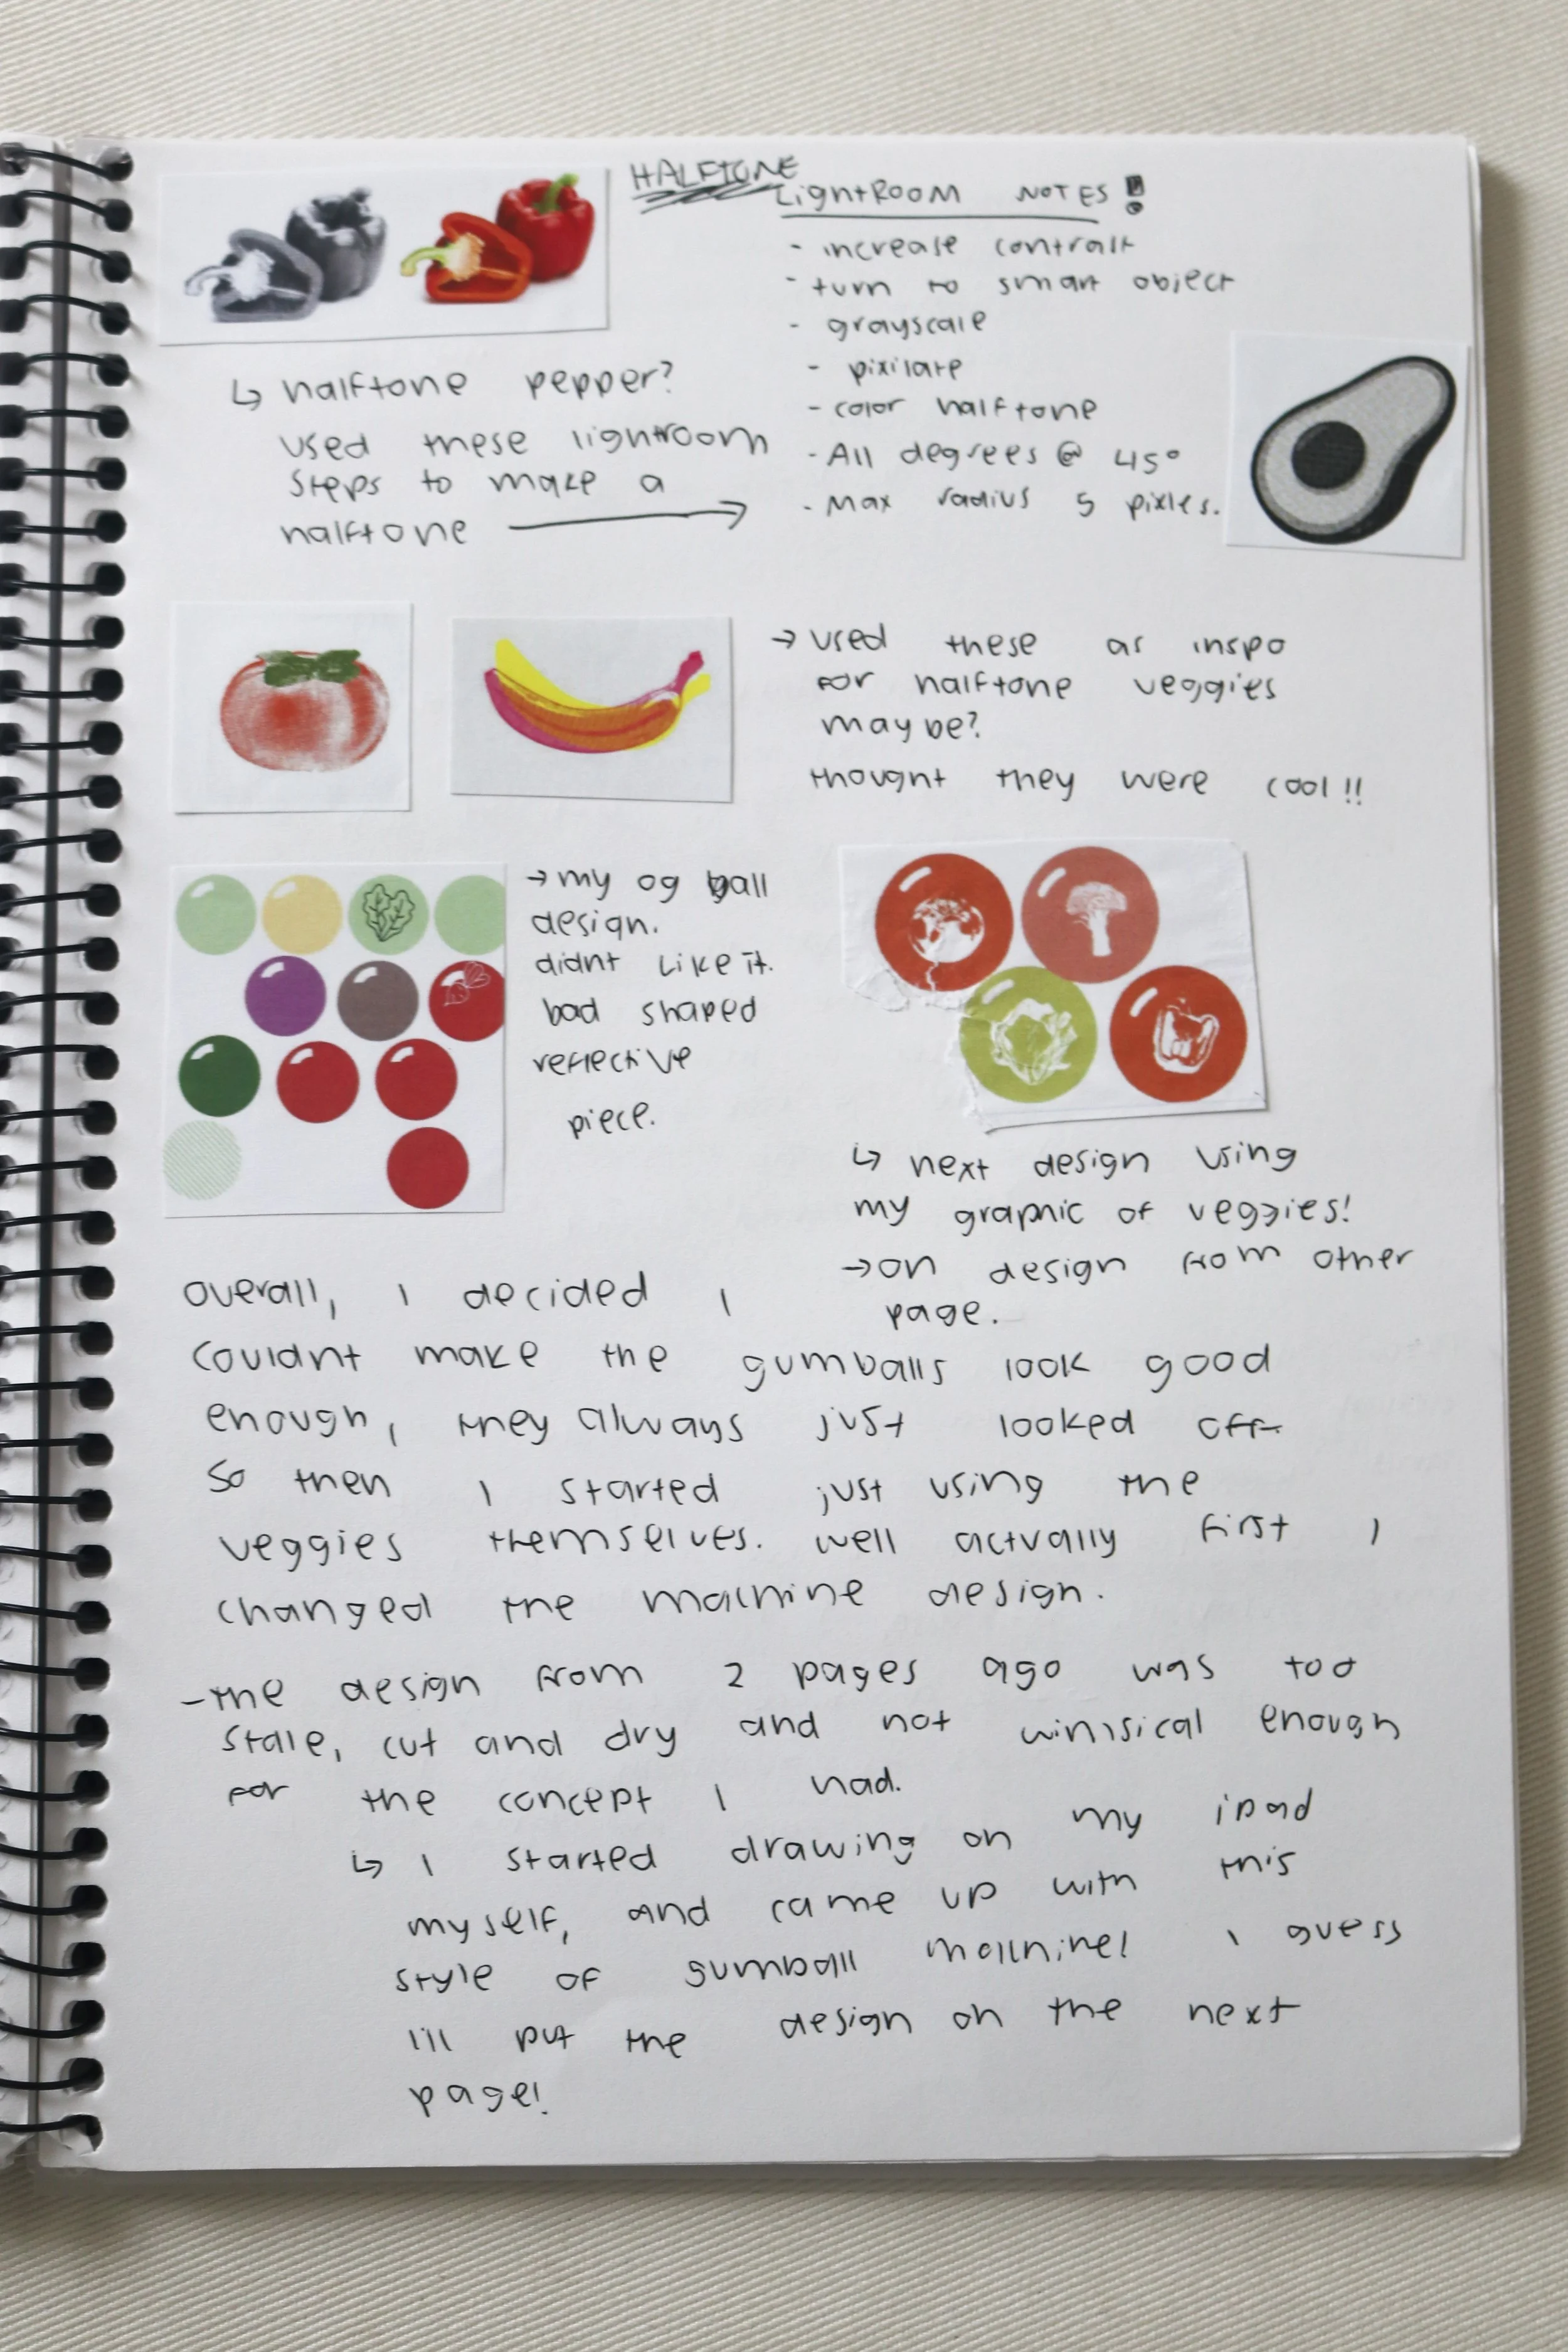 HALFTONE
LightRoom NOTES!
- increase contrast
- turn to smart object
- grayscale
- pixilate
- color halftone
- All degrees @ 45°
- Max radius 5 pixles.
↳ halftone pepper?
used these lightroom
steps to make a
halftone →
→ used these as inspo
for halftone veggies
maybe?
thought they were cool!!
→ my og ball
design.
didnt like it.
bad shaped
reflective
piece.
↳ next design using
my graphic of veggies!
→ on design from other
page.
overall, I decided I
couldnt make the gumballs look good
enough, they always just looked off
so then I started just using the
veggies themselves. well actually first I
changed the machine design.
- the design from 2 pages ago was too
stale, cut and dry and not wimsical enough
for the concept I had.
↳ I started drawing on my ipad
myself, and came up with this
style of gumball machine! I guess
I'll put the design on the next
page!